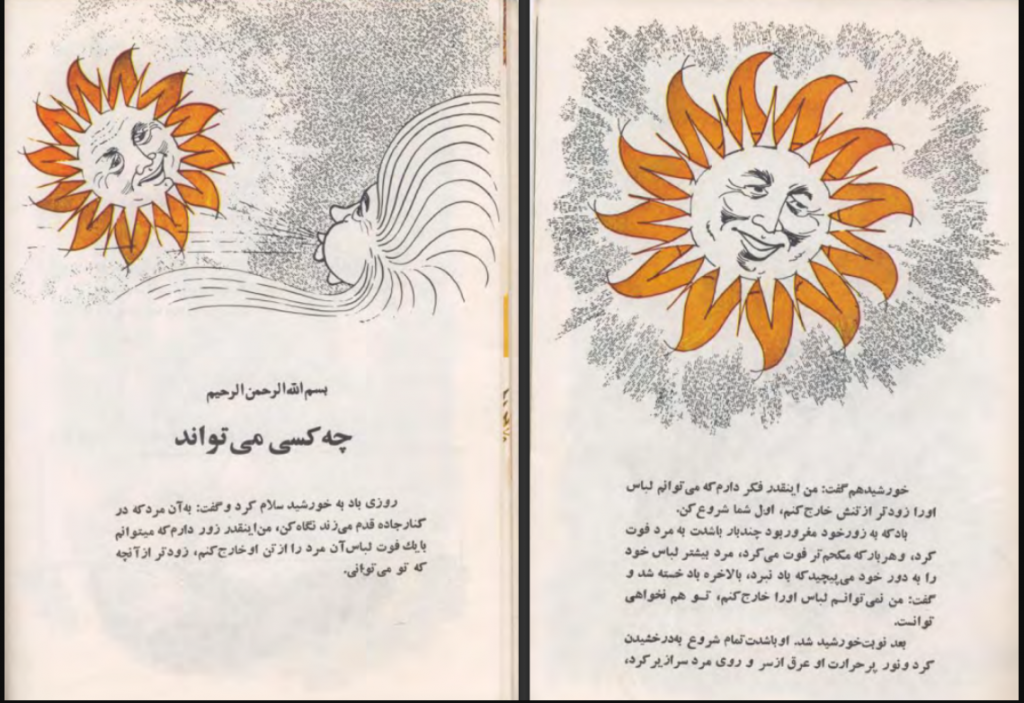 بسم الله الرحمن الرحیم
چه کسی می تواند
روزی باد به خورشید سلام کرد و گفت: به آن مرد که در
کنار جاده قدم می زند نگاه کن، من اینقدر زور دارم که میتوانم
با یك فوت لباس آن مرد را از تن او خارج کنم، زودتر از آنچه
که تو می توانی.
خورشید هم گفت: من اینقدر فکر دارم که می توانم لباس
اورا زودتر از تنش خارج کنم، اول شما شروع کن.
باد که به زور خود مغرور بود چندبار باشدت به مرد فوت
کرد، و هر بار که محکم تر فوت می کرد، مرد بیشتر لباس خود
را به دور خود می پیچید که باد نبرد، بالاخره باد خسته شد و
گفت: من نمی توانم لباس اورا خارج کنم، تو هم نخواهی
توانست.
بعد نوبت خورشید شد. او باشدت تمام شروع به درخشیدن
کرد و نور پر حرارت او عرق از سر و روی مرد سرازیر کرد،